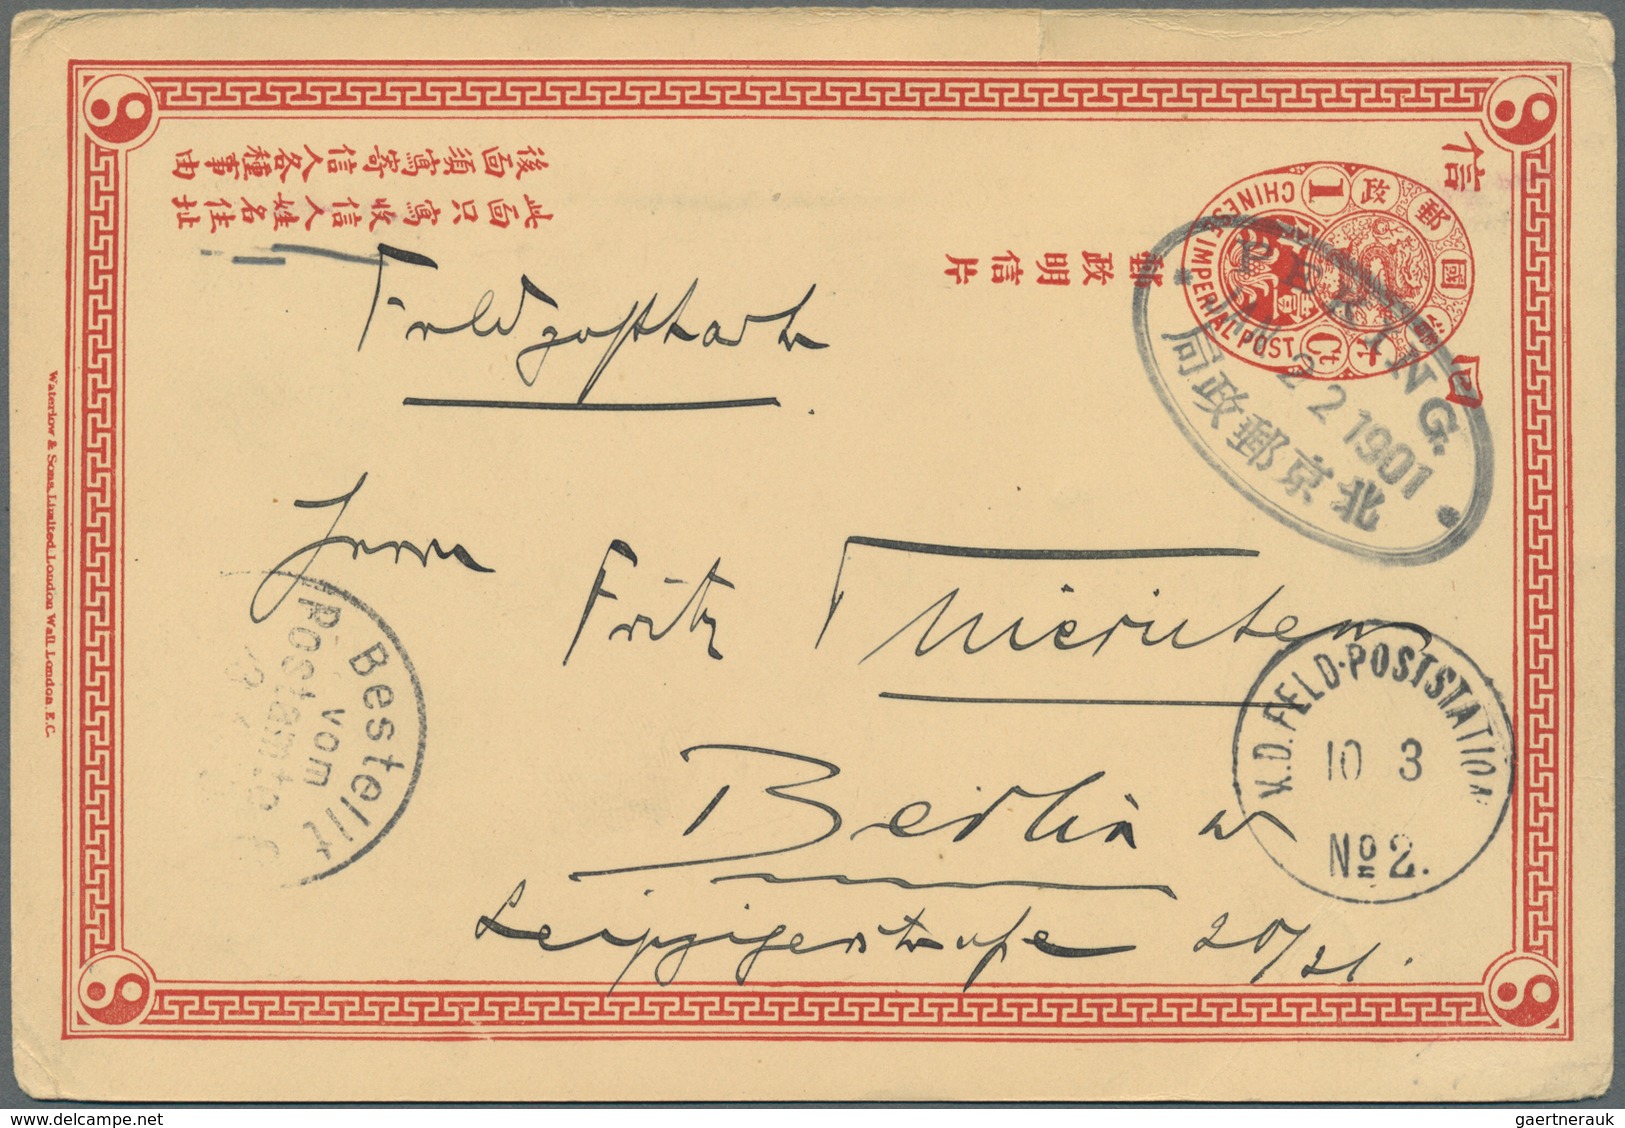 後面須寫寄信人各種事由
此面只寫收信人姓名住址
郵政明信片
信
回
大清國郵政
1
CHINESE IMPERIAL POST
壹分
Ct
* PEKING. *
JAN 22 1901
北京郵政局
Feldpostkarte
Herrn
Fritz
Berlin W
Leipzigerstraße 20/21.
K.D. FELD-POSTSTATION
10 3
No 2.
Bestellt
vom
Postamte
Waterlow & Sons Limited. London Wall, London. E.C.
gaertnerauk
delcampe.net